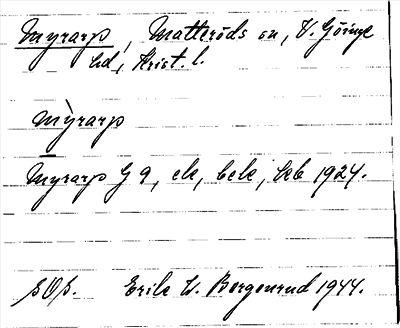 Myrarp, Matteröds sn, V. Göinge
hd, Krist. l.
mỳrarp
Myrarp G 9, ek, bek, kb 1924.
SOS. Erik W. Bergenrud 1944.